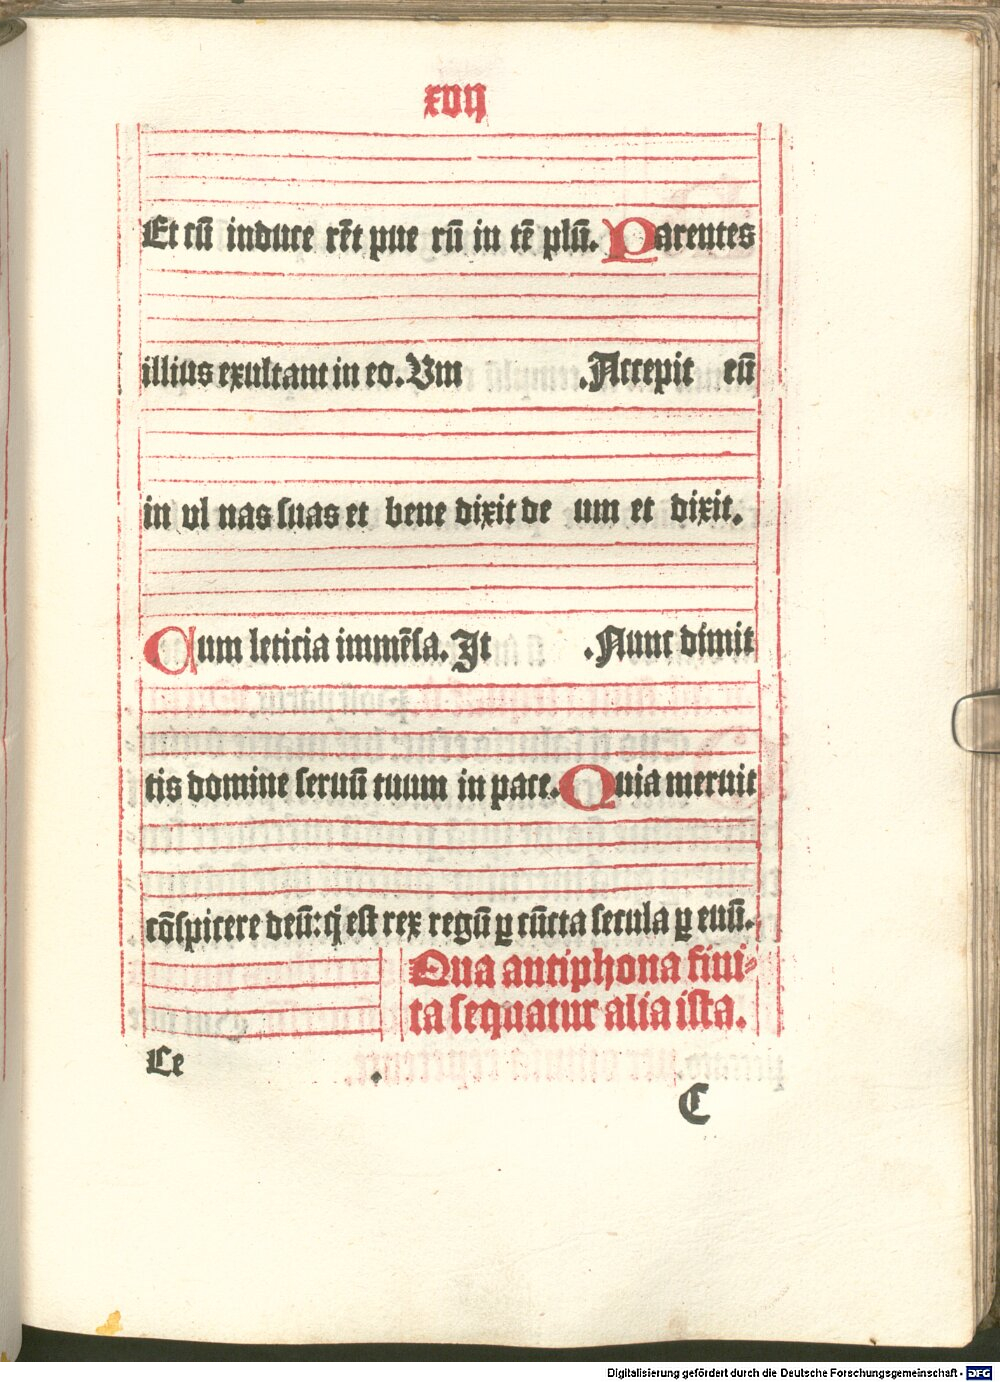 xvij
Et cū induce rēt pue rū in tē plū. Parentes
illius exultant in eo. Vm .Accepit eū
in vl nas suas et bene dixit de um et dixit.
Cum leticia immēsa. It .Nunc dimit
tis domine seruū tuum in pace. Quia meruit
cōspicere deū: q̇ est rex regū ꝑ cūcta secula ꝑ euū.
Qua antiphona fini⸗
ta sequatur alia ista.
Le
C
Digitalisierung gefördert durch die Deutsche Forschungsgemeinschaft - DFG